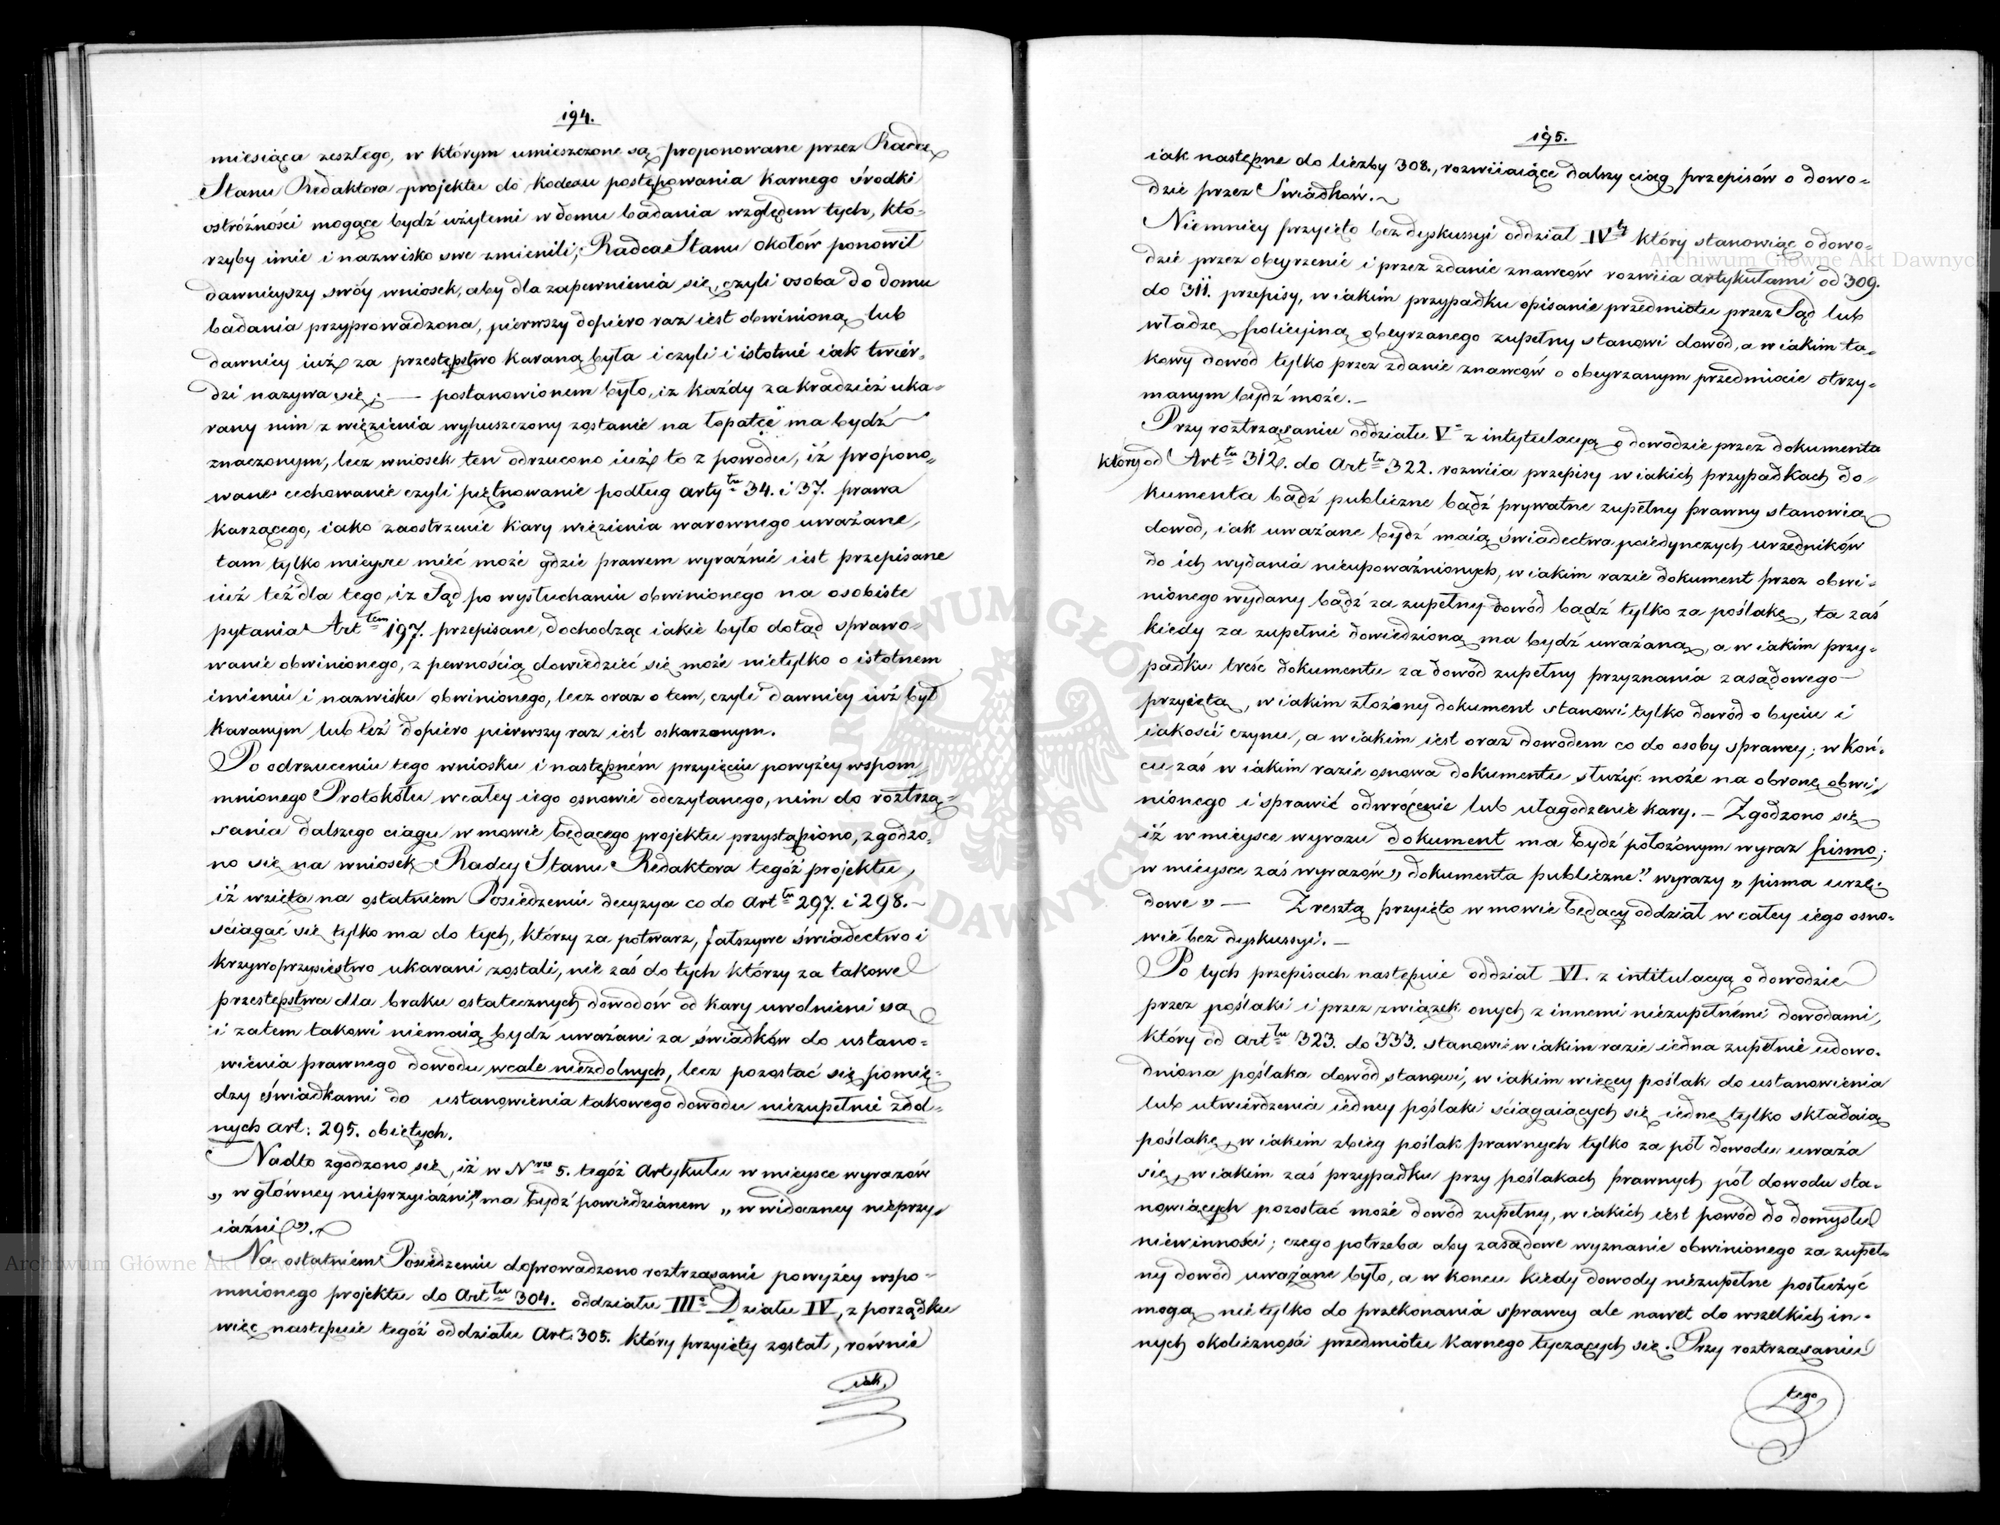 194.
miesiąca zeszłego, w którym umieszczone są proponowane przez Radcę
Stanu Redaktora projektu do kodexu postępowania karnego środki
ostróżności mogące bydź użytemi w domu badania względem tych, któ-
rzyby imie i nazwisko swe zmienili; Radca Stanu Okołów ponowił
dawnieyszy swóy wniosek, aby dla zapewnienia się, czyli osoba do domu
badania przyprowadzona, pierwszy dopiero raz iest obwinioną lub
dawniey iuż za przestępstwo karaną była i czyli istotnie iak twier-
dzi nazywa się; — postanowionem było, iż każdy za kradzież uka-
rany nim z więzienia wypuszczony zostanie na łopatce ma bydź
znaczonym, lecz wniosek ten odrzucono iuż to z powodu, iż propono-
wane cechowanie czyli piętnowanie podług arty<sup>łu</sup> 34. i 37. prawa
karzącego, iako zaostrzenie kary więzienia warownego uważane,
tam tylko mieysce mieć może gdzie prawem wyraźnie iest przepisane
iuż też dla tego, iż Sąd po wysłuchaniu obwinionego na osobiste
pytania Art<sup>łem</sup> 197. przepisane, dochodząc iakie było dotąd sprawo-
wanie obwinionego, z pewnością dowiedzieć się może nietylko o istotnem
imieniu i nazwisku obwinionego, lecz oraz o tem, czyli dawniey iuż był
karanym lub też dopiero pierwszy raz iest oskarżonym.
Po odrzuceniu tego wniosku i następnem przyięciu powyżey wspom-
mnionego Protokółu w całey iego osnowie odczytanego, nim do roztrzą-
sania dalszego ciągu w mowie będącego projektu przystąpiono, zgodzo-
no się na wniosek Radcy Stanu Redaktora tegóż projektu,
iż wzięta na ostatniem Posiedzeniu decyzya co do Art<sup>łu</sup> 297. i 298. –
ściągać się tylko ma do tych, którzy za potwarz, fałszywe świadectwo i
krzywoprzysięstwo ukarani zostali, nie zaś do tych którzy za takowe
przestępstwa dla braku ostatecznych dowodów od kary uwolnieni są
i zatem takowi niemaią bydź uważani za świadków do ustano-
wienia prawnego dowodu wcale niezdolnych, lecz pozostać się pomię-
dzy świadkami do ustanowienia takowego dowodu niezupełnie zdol-
nych art: 295. obiętych.
Nadto zgodzono się, iż w N<sup>rze</sup> 5. tegóż Artykułu w mieysce wyrazów
„w główney nieprzyiaźni", ma bydź powiedzianem „w widoczney nieprzy-
iaźni".
Na ostatniem Posiedzeniu doprowadzono roztrząsanie powyżey wspo-
mnionego projektu do Art<sup>łu</sup> 304. oddziału III<sup>o</sup> Działu IV, z porządku
więc nastepuie tegóż oddziału Art: 305. który przyięty został, równie
iak,
195.
iak następne do liczby 308., rozwiiaiące dalszy ciąg przepisów o dowo-
dzie przez Swiadków.
Niemniey przyięto bez dyskussyi oddział IV<sup>ty</sup> który stanowiąc o dowo-
dzie przez obeyrzenie i przez zdanie znawców rozwiia artykułami od 309.
do 311. przepisy, w iakim przypadku opisanie przedmiotu przez Sąd lub
władzę policyiną obeyrzanego zupełny stanowi dowód, a w iakim ta-
kowy dowód tylko przez zdanie znawców o obeyrzanym przedmiocie otrzy-
manym bydź może. –
Przy roztrząsaniu oddziału V<sup>o</sup> z intytulacyą o dowodzie przez dokumenta
który od Art<sup>łu</sup> 312. do Art<sup>łu</sup> 322. rozwiia przepisy w iakich przypadkach do-
kumenta bądź publiczne bądź prywatne zupełny prawny stanowią
dowód, iak uważane bydź maią świadectwa poiedynczych urzędników
do ich wydania nieupoważnionych, w iakim razie dokument przez obwi-
nionego wydany bądź za zupełny dowód bądź tylko za poślakę, ta zaś
kiedy za zupełnie dowiedzioną ma bydź uważaną, a w iakim przy-
padku treść dokumentu za dowód zupełny przyznania zasądowego
przyięta, w iakim złożony dokument stanowi tylko dowód o byciu i
iakości czynu, a w iakim iest oraz dowodem co do osoby sprawcy; w koń-
cu zaś w iakim razie osnowa dokumentu służyć może na obronę obwi-
nionego i sprawić odwrócenie lub ułagodzenie kary. – Zgodzono się
iż w mieysce wyrazu dokument ma bydź położonym wyraz pismo;
w mieysce zaś wyrazów „dokumenta publiczne" wyrazy „pisma urzę-
dowe" — Zresztą przyięto w mowie będący oddział w całey iego osno-
wie bez dyskussyi. –
Po tych przepisach nastepuie oddział VI. z intitulacyą o dowodzie
przez poślaki i przez związek onych z innemi niezupełnemi dowodami,
który od Art<sup>łu</sup> 323. do 333. stanowi w iakim razie iedna zupełnie udowo-
dniona poślaka dowód stanowi, w iakim więcey poślak do ustanowienia
lub utwierdzenia iedney poślaki ściągaiących się iednę tylko składaią
poślakę, w iakim zbieg poślak prawnych tylko za pół dowodu uważa
się, w iakim zaś przypadku przy poślakach prawnych pół dowodu sta-
nowiących pozostać może dowód zupełny, w iakich iest powód do domysłu
niewinności; czego potrzeba aby zasądowe wyznanie obwinionego za zupeł-
ny dowód uważane było, a w końcu kiedy dowody niezupełne posłużyć
mogą nietylko do przekonania sprawcy ale nawet do wszelkich in-
nych okoliczności przedmiotu karnego tyczących się. Przy roztrząsaniu
tego
Archiwum Główne Akt Dawnych
Archiwum Główne Akt Dawnych
ARCHIWUM GŁÓWNE AKT DAWNYCH